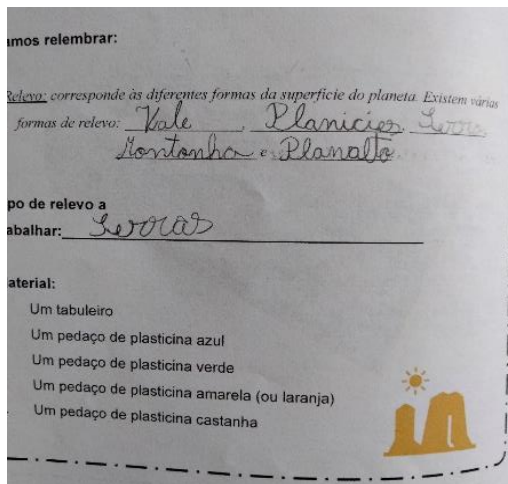 amos relembrar:
Relevo: corresponde às diferentes formas da superfície do planeta. Existem várias
formas de relevo: Vale, Planicies, Serras
Montanha e Planalto
po de relevo a
abalhar: Serras
aterial:
Um tabuleiro
Um pedaço de plasticina azul
Um pedaço de plasticina verde
Um pedaço de plasticina amarela (ou laranja)
Um pedaço de plasticina castanha